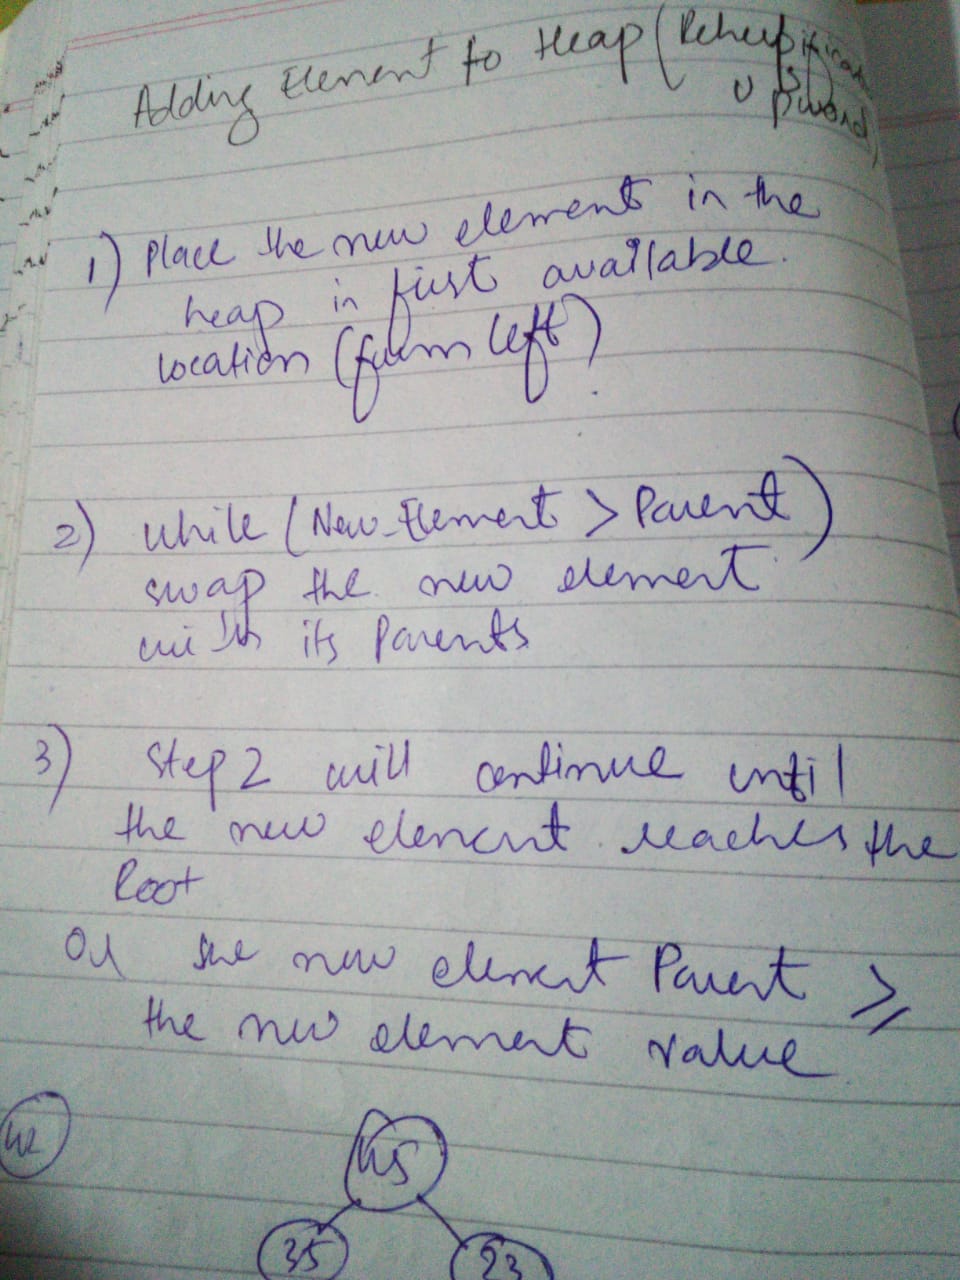 Adding Element to Heap (Reheapification
Upward)
1) Place the new elements in the
heap in first available.
location (from left).
2) while (New-Element > Parent)
swap the new element
with its Parents
3) Step 2 will continue until
the new element reaches the
Root
Or the new element Parent ≥
the new element value
42
45
35 23